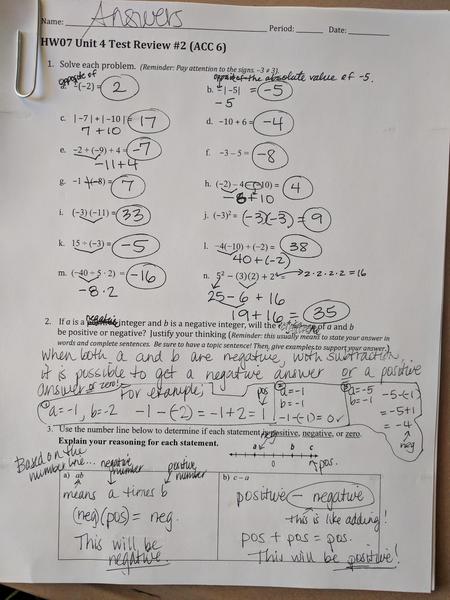 Name: Answers
Period: ______ Date: ______
HW07 Unit 4 Test Review #2 (ACC 6)
1. Solve each problem. (Reminder: Pay attention to the signs. -3 ≠ 3).
opposite of
the absolute value of -5.
a. -(-2) = 2
b. -|-5| = -5
-5
c. |-7| + |-10| = 17
7 + 10
d. -10 + 6 = -4
e. -2 + (-9) + 4 = -7
-11 + 4
f. -3 – 5 = -8
g. -1 – (-8) = 7
h. (-2) – 4 – (-10) = 4
-6 + 10
i. (-3)(-11) = 33
j. (-3)² = (-3)(-3) = 9
k. 15 ÷ (-3) = -5
l. -4(-10) + (-2) = 38
40 + (-2)
m. (-40 ÷ 5 · 2) = -16
-8 · 2
n. 5² – (3)(2) + 2⁴ = → 2·2·2·2 = 16
25 - 6 + 16
19 + 16 = 35
2. If a is a negative integer and b is a negative integer, will the of a and b
be positive or negative? Justify your thinking (Reminder: this usually means to state your answer in
words and complete sentences. Be sure to have a topic sentence! Then, give examples to support your answer.)
When both a and b are negative, with subtraction,
it is possible to get a negative answer or a positive
answer or zero! For example;
① a = -1, b = -2 -1 - (-2) = -1 + 2 = 1 pos
② a = -1
b = -1
-1 - (-1) = 0
③ a = -5
b = -1
-5 - (-1)
= -5 + 1
= -4
neg
3. Use the number line below to determine if each statement is positive, negative, or zero.
Explain your reasoning for each statement.
a 0 b c
pos.
Based on the
number line... negative number positive number
a) ab
means a times b
(neg)(pos) = neg.
This will be
negative
b) c – a
positive - negative
this is like adding!
pos + pos = pos.
This will be positive!